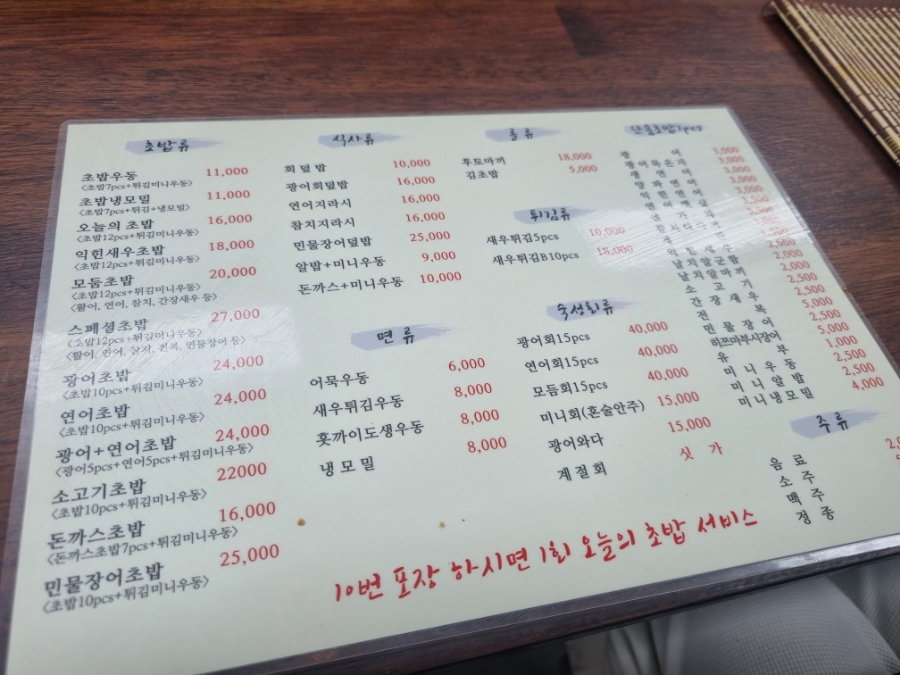 초밥류
초밥우동 11,000
<초밥7pcs+튀김미니우동>
초밥냉모밀 11,000
<초밥7pcs+튀김+냉모밀>
오늘의 초밥 16,000
<초밥12pcs+튀김미니우동>
익힌새우초밥 18,000
<초밥12pcs+튀김미니우동>
모둠초밥 20,000
<초밥12pcs+튀김미니우동>
<활어, 연어, 참치, 간장새우 등>
스페셜초밥 27,000
<초밥12pcs+튀김미니우동>
<활어, 연어, 살사, 전복, 민물장어 등>
광어초밥 24,000
<초밥10pcs+튀김미니우동>
연어초밥 24,000
<초밥10pcs+튀김미니우동>
광어+연어초밥 24,000
<광어5pcs+연어5pcs+튀김미니우동>
소고기초밥 22000
<초밥10pcs+튀김미니우동>
돈까스초밥 16,000
<돈까스초밥7pcs+튀김미니우동>
민물장어초밥 25,000
<초밥10pcs+튀김미니우동>
식사류
회덮밥 10,000
광어회덮밥 16,000
연어지라시 16,000
참치지라시 16,000
민물장어덮밥 25,000
알밥+미니우동 9,000
돈까스+미니우동 10,000
면류
어묵우동 6,000
새우튀김우동 8,000
홋까이도생우동 8,000
냉모밀 8,000
롤류
후토마끼 18,000
김초밥 5,000
튀김류
새우튀김5pcs 10,000
새우튀김B10pcs 18,000
숙성회류
광어회15pcs 40,000
연어회15pcs 40,000
모듬회15pcs 40,000
미니회(혼술안주) 15,000
광어와다 15,000
계절회 싯가
단품초밥1pcs
3,000
3,000
3,000
3,000
3,500
소고기
간장새우 2,500
전복
민물장어 5,000
유부 1,000
미니우동 2,500
미니알밥 2,500
미니냉모밀 4,000
주류
음료
소주
맥주
정종
10번 포장 하시면 1회 오늘의 초밥 서비스